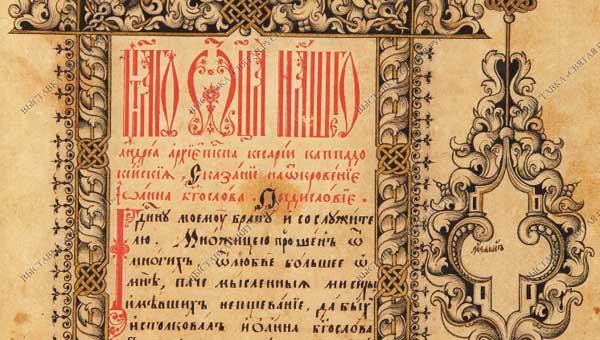 ст҃аго ѻц҃а нашего
андреа архїепкпа кесарїи каппадо
кийскїѧ, Сказанїе наѿкровенїе
Їѡанна бг҃ослова . Предисловїе .
Гдину моемоу брату и со служите
лю . Множицею прошен ѿ
многихъ, ѿлюбве большее ѿ
мнѣ, паче мысленныѧ ми силы
имѣвшихъ непщевание, да бых
исполковалъ иоанна бг҃ослова
ВЫСТАВКА «СВЯТАЯ РУСЬ»